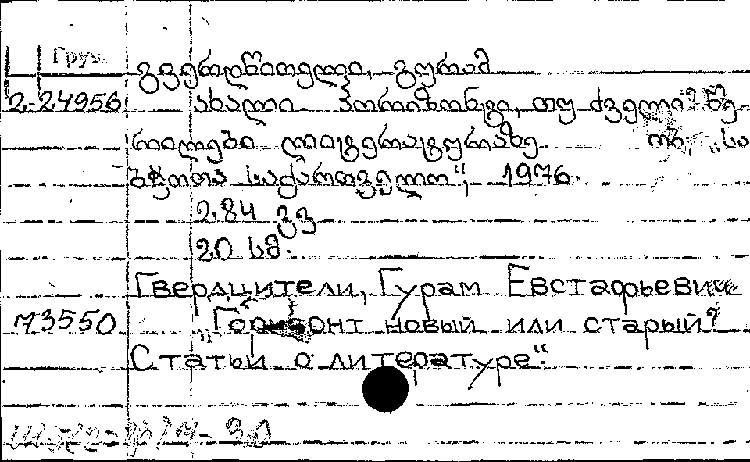 Груз.
გვერდწითელი, გურამ
2-24956 ახალი ჰორიზონტი, თუ ძველი? წე-
რილები ლიტერატურაზე. თბ., „სა
ბჭოთა საქართველო“, 1976.
284 გვ
20 სმ.
Гвердцители, Гурам Евстафьевич
73550 „Горизонт новый или старый?
Статьи о литературе“.